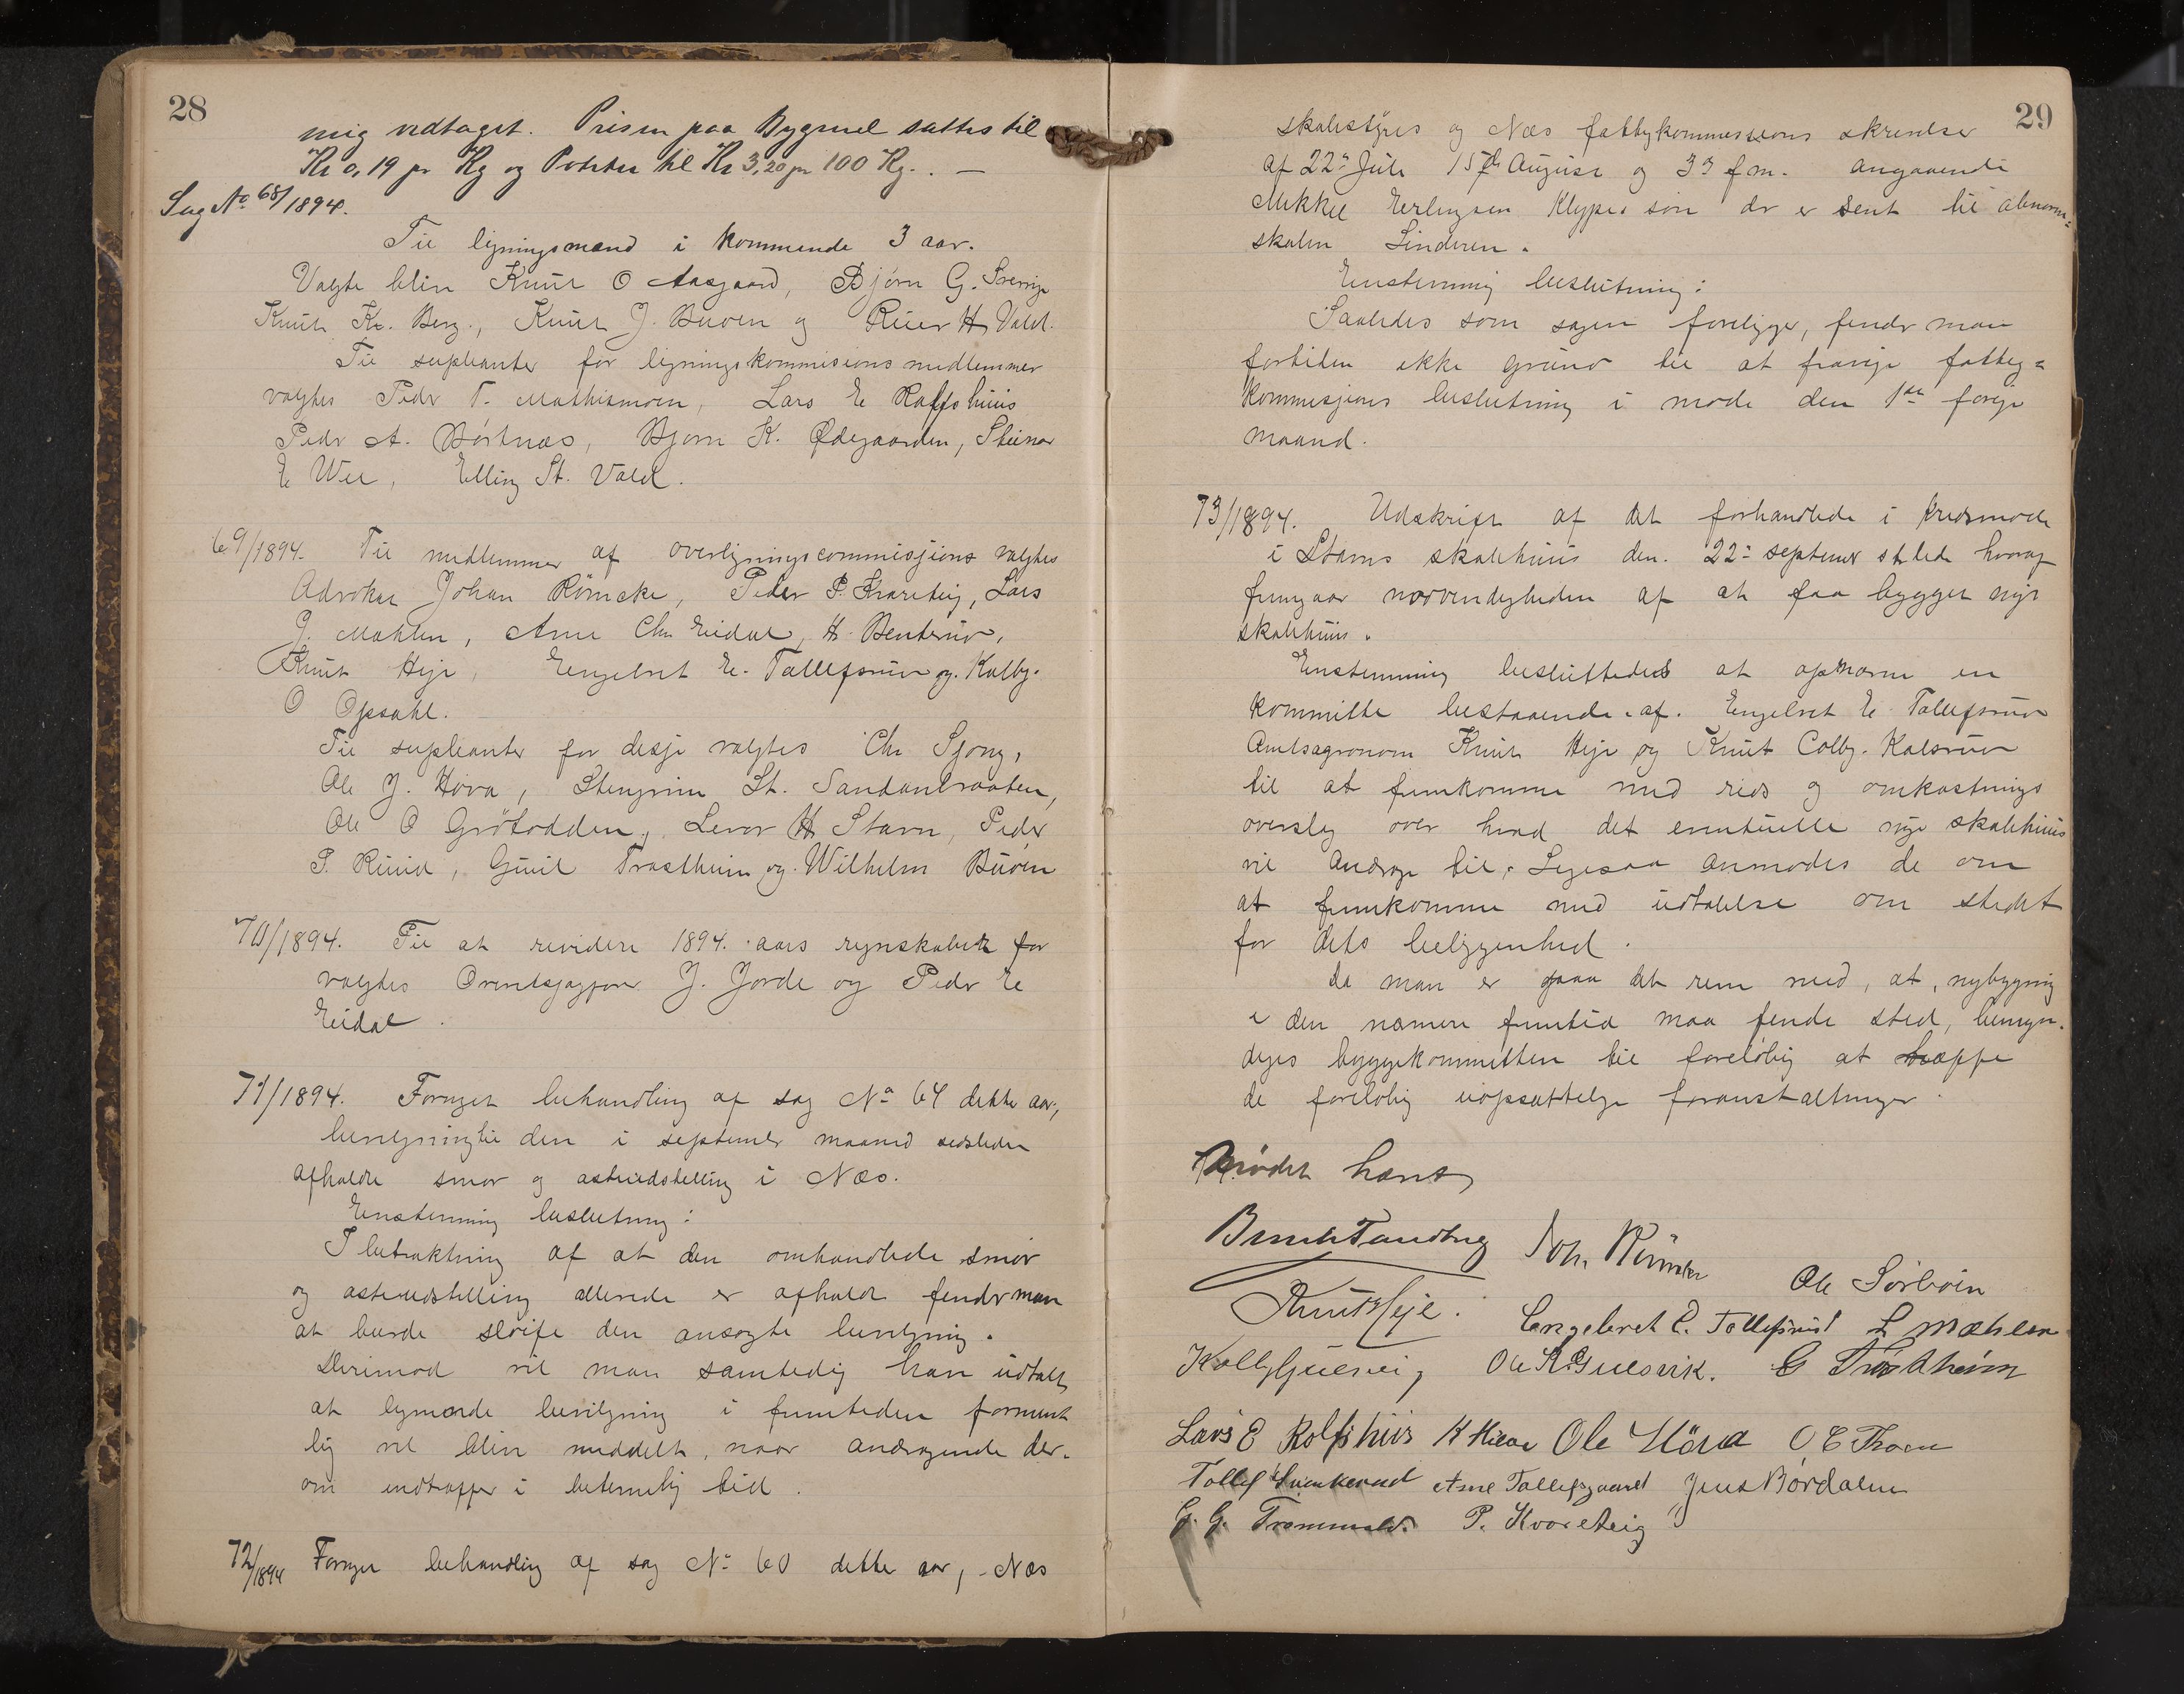 28
mig vedtaget. Prisen paa Bygmel sattes til
Kr 0,19 pr Kg og Poteter til Kr 3,20 pr 100 Kg. . —
Sag No 68/1894.
Til ligningsmænd i kommende 3 aar.
Valgte blev Knut O Aasgaard, Bjørn G.
Knut Kr. Berg., Knut J. Buøen og H Vald.
Til supleanter for ligningskommisions medlemmer
valgtes Peder T. Mathismoen, Lars E Rolfshuus
Peder A. Børtnæs, Bjørn K. Ødegaarden, Steinar
E Wel, Elling St. Vald.
69/1894. Til medlemmer af overligningscommisjions valgtes
Advokat Johan Römcke, Peder P. Kvareteig, Lars
J. Mæhlen, Arne Chr Eidal, H. Benterud,
Knut Heje, Engebret E. Tollefsrud og. Kolbj.
O Opsahl.
Til supleanter for desje valgtes Chr Sjong,
Ole J. Höva, Stengrim St. Sandanbraaten,
Ole O Grötodden, Levor H Stavn, Peder
P. Ruud, Guul Trostheim og. Wilhelm Buöen
70/1894. Til at revidere 1894. aars regnskaber for
valgtes J. Jorde og Peder E
Eidal.
71/1894. Fornyet behandling af sag No 64 dette aar,
bevilgning til den i septemb maaned sidstleden
afholdte smør og osteudstelling i Næs.
Eenstemmig beslutning:
I betraktning af at den omhandlede smör
og osteudstelling allerede er afholdt finder man
at burde slöife den ansøgte bevilgning.
Derimod vil man samtidig have udtalt
at lignende bevilgning i fremtiden forment
lig vil blive meddelt, naar andragende der-
om indtræffer i betimelig tid.
72/1894 Fornyet behandling af sag No 60 dette aar, - Næs
29
skolestyres og Næs fattigkommissions skrivelser
af 22de Juli 15de August og 3die f. m. angaaende
Mikkel Erlingsen Klypes søn der er sent til abnorm=
skolen Linderen.
Eenstemmig beslutning:
Saaledes som sagen foreligger, finder man
fortiden ikke grund til at fravige fattig=
kommisjones beslutning i møde den 1ste forige
maaned.
73/1894. Udskrift af det forhandlede i kredsmøde
i Stavns skolehuus den. 22de september st lede hvoraf
fremgaar nødvendigheden af at faa bygget nyt
skolehuus.
Eenstemmig besluttedes at opnævne en
kommitte bestaaende af. Engebret E Tollefsrud
Amtsagronom Knut Heje og Knut Colbj. Kolsrud
til at fremkomme med rids og omkostnings
overslag over hvad det eventuelle nye skolehuus
vil andrage til. Ligesaa anmodes de om
at fremkomme med udtalelse om stedet
for dets beliggenhed.
Da man er paa det rene med, at, nybygning
i den nærmere fremtid maa finde sted, bemyn-
diges byggekommitteen til foreløbig at træffe
de foreløbig uopsættelige foranstaltninger.
Mødet hævet,
Bernt Tandberg Joh. Römcke
Ole Sörböen
Knut Heje.
Engebret E. Tollefsrud L Mæhlen
Kolbj Gulsvig Ole K. Gulsvik. G Trostheim
Lars E Rolfshus K Hilde Ole Höva O E Thoen
Tollef Arne Tollefsgaard Jens Børdalen
G. G. Trommald. P. Kvareteig